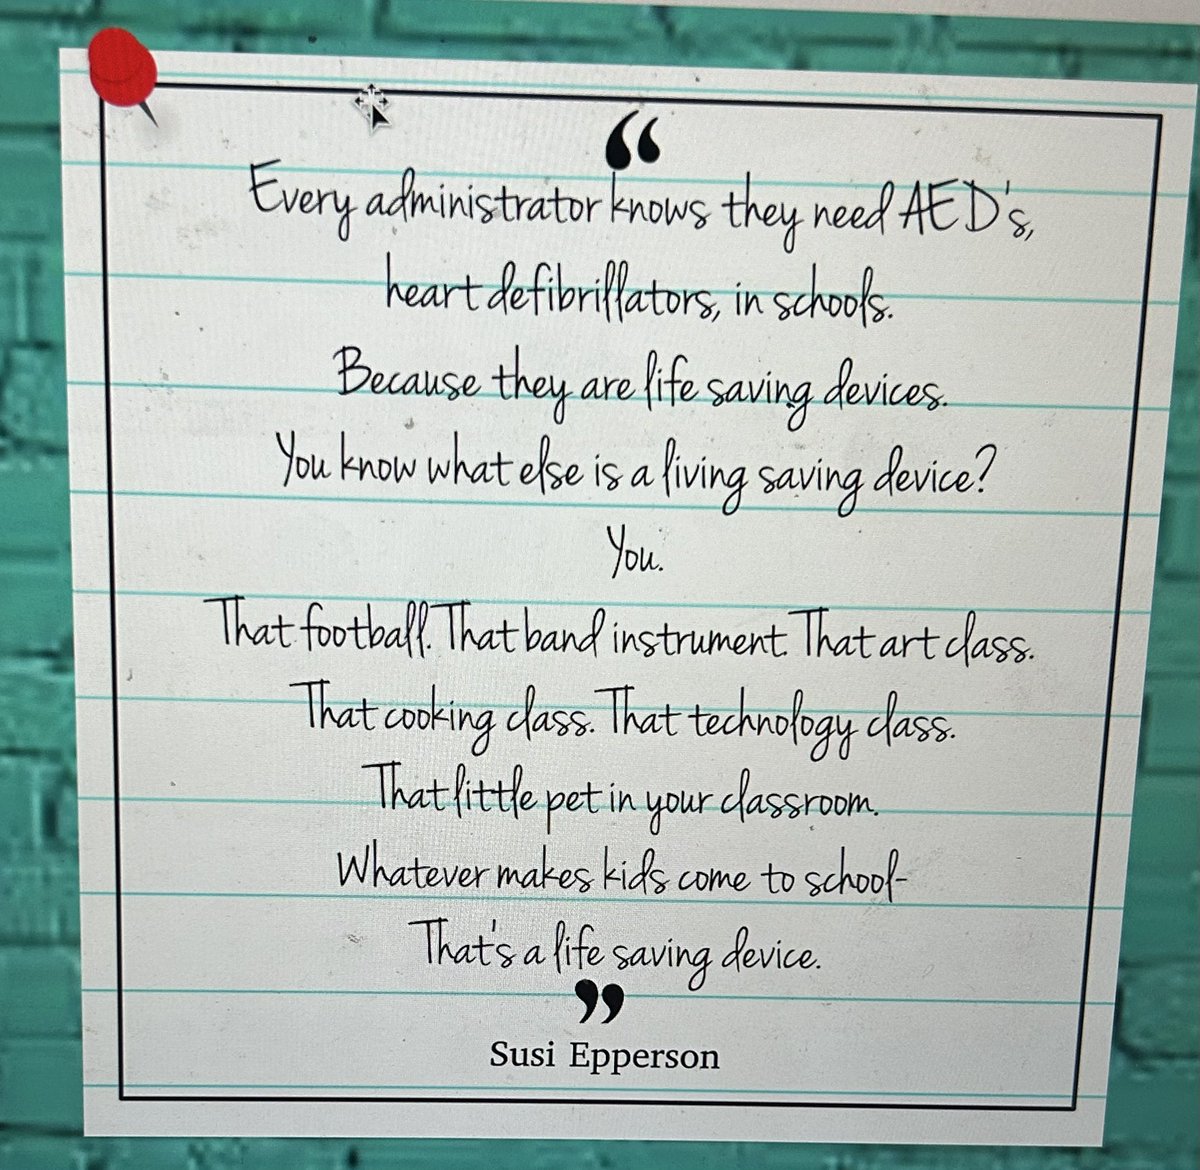 “
Every administrator knows they need AED's,
heart defibrillators, in schools.
Because they are life saving devices.
You know what else is a living saving device?
You.
That football. That band instrument. That art class.
That cooking class. That technology class.
That little pet in your classroom.
Whatever makes kids come to school-
That's a life saving device.
”
Susi Epperson